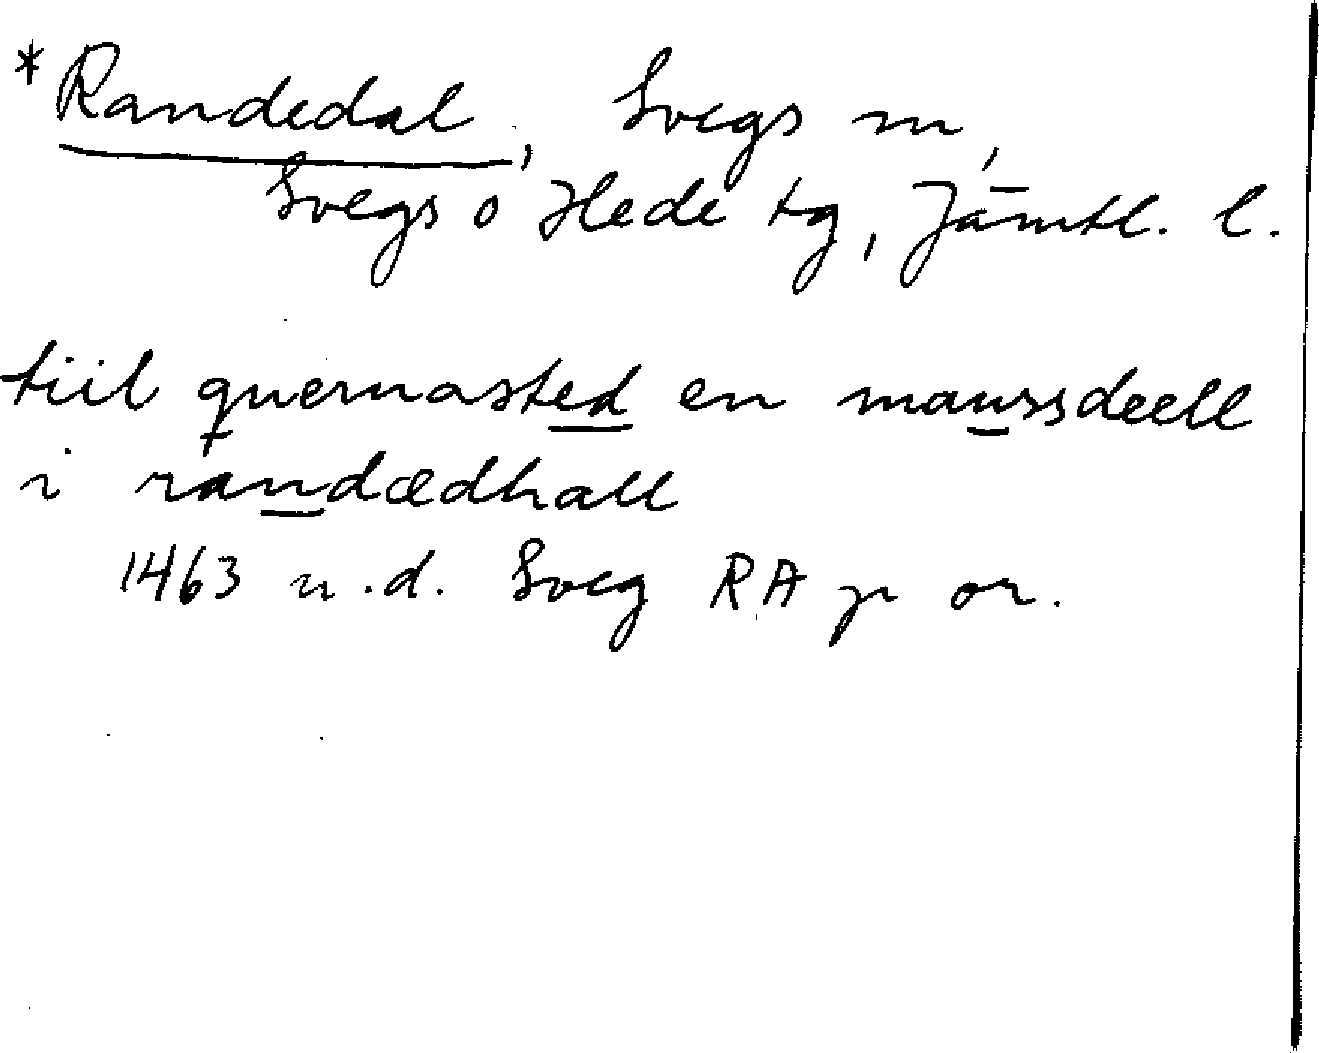 *Randedal, Svegs sn,
Svegs o Hede tg, Jämtl. l.
tiil quernasted en manssdeell
i randædhall
1463 u.d. Sveg RA p or.